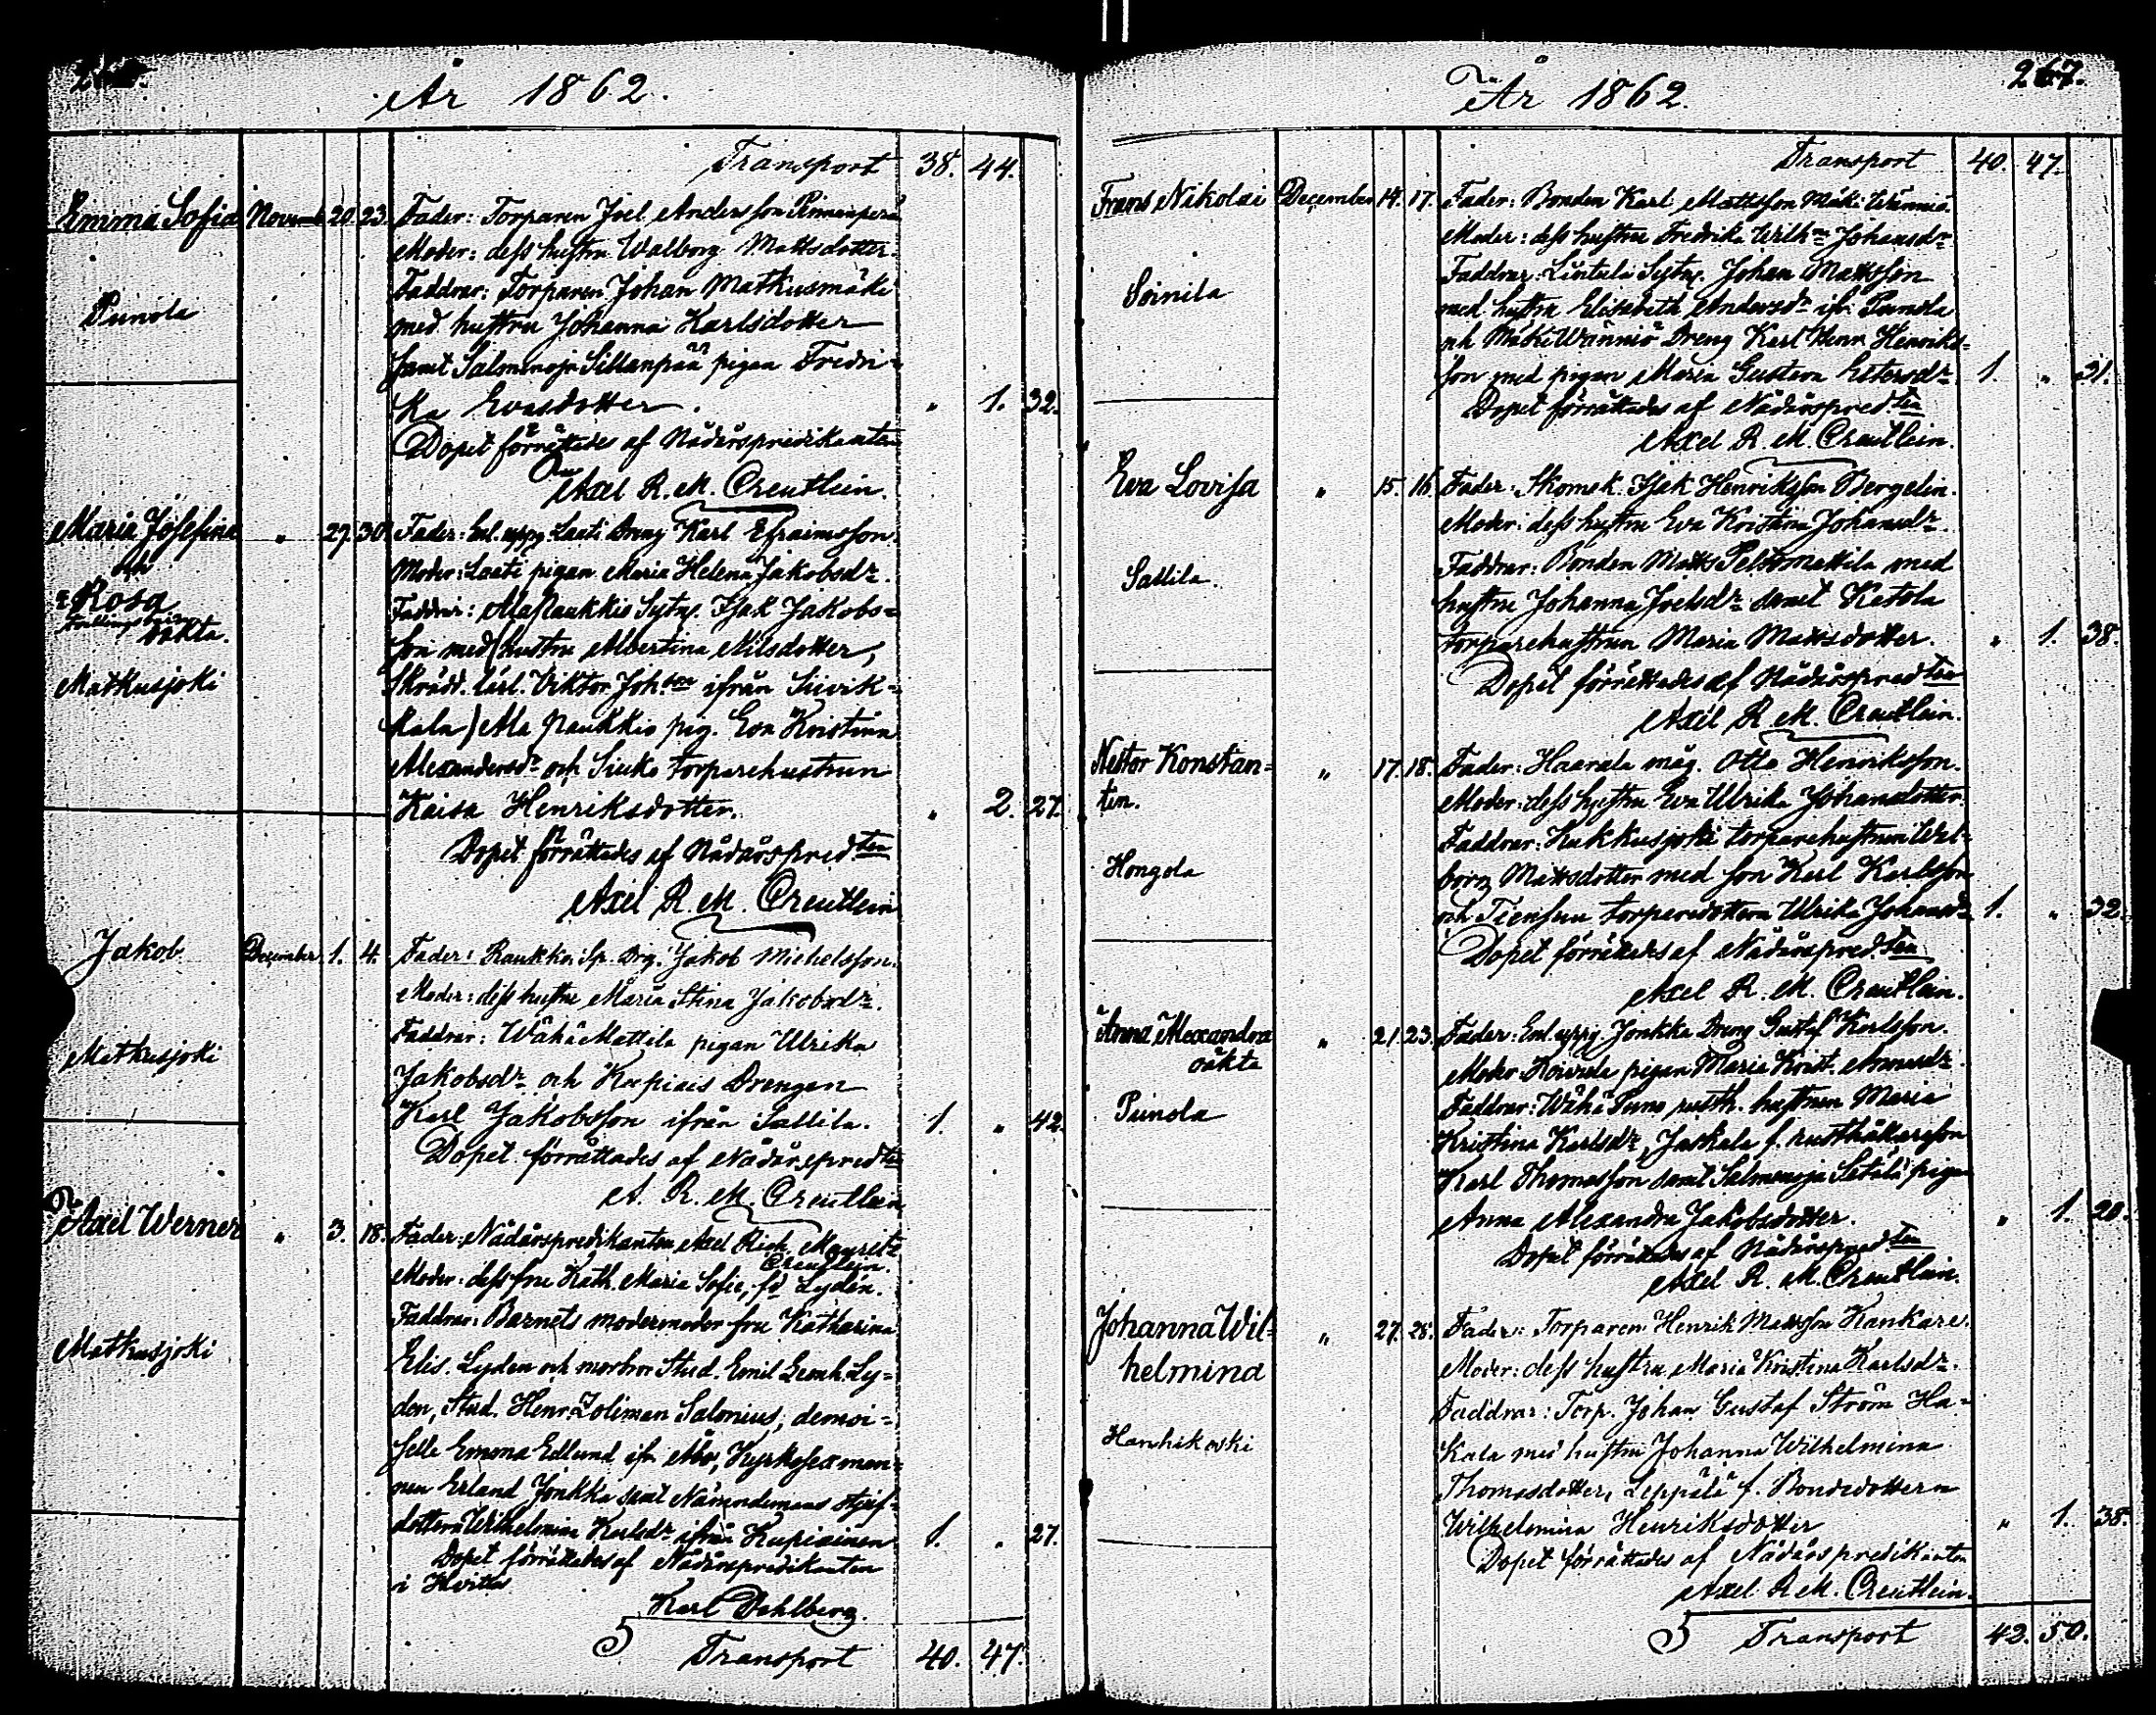 År 1862.
Transport 38. 44.
Emma Sofia Novemb. 20. 23. Fader: Torparen Joel Andersson
Moder: dess hustru Walborg Mattsdotter.
Faddrar: Torparen Johan Matkusmäki
Punola
med hustru Johanna Karlsdotter
samt Salmenoja Sillanpää pigan Fredri-
ka Evasdotter. " 1. 32.
Dopet förrättades af Nådårspredikanten
Axel R. M. Creutlein.
Maria Josefina " 27. 30. Fader: Enl. uppg. Laati Dreng Karl Efraimsson.
Moder: Laati pigan Maria Helena Jakobsdr.
Rosa
Faddrar: Ala Raukkio Sytn. Isak Jakobs-
oäkta.
son med (hustru Albertina Nilsdotter,
Matkusjoki
Skrädd. lärl. Viktor Johson ifrån Suvik-
kala) Ala Raukkio pig. Eva Kristina
Alexandersdr och Siuko torparehustrun
Kaisa Henriksdotter. " 2. 27.
Dopet förrättades af Nådårspredten
Axel R. M. Creutlein
Jakob December 1. 4. Fader: Raukko Sp. Drg. Jakob Michelsson.
Moder: dess hustru Maria Stina Jakobsdr.
Faddrar: Wähä Mattila pigan Ulrika
Matkusjoki
Jakobsdr och Kupiais Drengen
Karl Jakobsson ifrån Sallila. 1. " 42.
Dopet förrättades af Nådårspredten
A. R. M. Creutlein
Axel Werner " 3. 18. Fader: Nådårspredikanten Axel Rich. Mauritz
Creutlein.
Moder: dess fru Kath. Maria Sofie, fd Lydén.
Faddrar: Barnets modermoder fru Katharina
Matkusjoki
Elis. Lyden och morbror Stud. Emil Leonh. Ly-
den, Stud. Henr. Zoliman Salonius, demoi-
selle Emma Edlund ifr. Åbo, Kyrkosexman-
nen Erland Jonkka samt Nämndemans styf-
dottern Wilhelmina Karlsdr ifrån Kupiainen 1. " 27.
Dopet förrättades af Nådårspredikanten
i Hvittis
Karl Dahlberg.
5 Transport 40. 47.
År 1862. 267.
Transport 40. 47.
Frans Nikolai December 14. 17. Fader: Bonden Karl Mattsson Mäki Wänniö.
Moder: dess hustru Fredrika Wilhna Johansdr
Faddrar: Lintula Sytn. Johan Mattsson
Soinila
med hustru Elisabeth Andersdr ifr. Punola
och Mäki Wänniö Dreng Karl Henr. Henriks-
son med pigan Maria Gustava Estersdr. 1. " 31.
Dopet förrättades af Nådårspredten
Axel R. M. Creutlein.
Eva Lovisa " 15. 16. Fader: Skomak. Isak Henriksson Bergelin.
Moder: dess hustru Eva Kristina Johansdr.
Faddrar: Bonden Matts Peltomattila med
Sallila.
hustru Johanna Joelsdr samt Ketola
torparehustrun Maria Mattsdotter. " 1. 38.
Dopet förrättades af Nådårspredten
Axel R. M. Creutlein.
Nestor Konstan- " 17. 18. Fader: Haarala måg. Otto Henriksson.
tin.
Moder: dess hustru Eva Ulrika Johansdotter.
Faddrar: Kukkusjoki torparehustrun Wal-
Hongola
borg Mattsdotter med son Karl Karlsson
och torparedottern Ulrika Johansdr 1. " 32.
Dopet förrättades af Nådårspred.ten
Axel R. M. Creutlein.
Anna Alexandra " 21. 23. Fader: Enl. uppg. Jonkka Dreng Gustaf Karlsson.
oäkta
Moder: Koivula pigan Maria Krist.
Faddrar: Wähä Puno rusth. hustrun Maria
Punola
Kristina Karlsdr, Jaskala f. rusthållaresson
Karl Thomasson samt Salmenoja Setälä pigan
Anna Alexandra Jakobsdotter. " 1. 20.
Dopet förrättades af Nådårspred.ten
Axel R. M. Creutlein.
Johanna Wil- " 27. 28. Fader: Torparen Henrik Mattsson Kankare.
helmina
Moder: dess hustru Maria Kristina Karlsdr.
Faddrar: Torp. Johan Gustaf Ström Ha-
Hanhikoski
kala med hustru Johanna Wilhelmina
Thomasdotter, Leppälä f. Bondedottern
Wilhelmina Henriksdotter " 1. 38.
Dopet förrättades af Nådårspredikanten
Axel R. M. Creutlein.
5 Transport 42. 50.